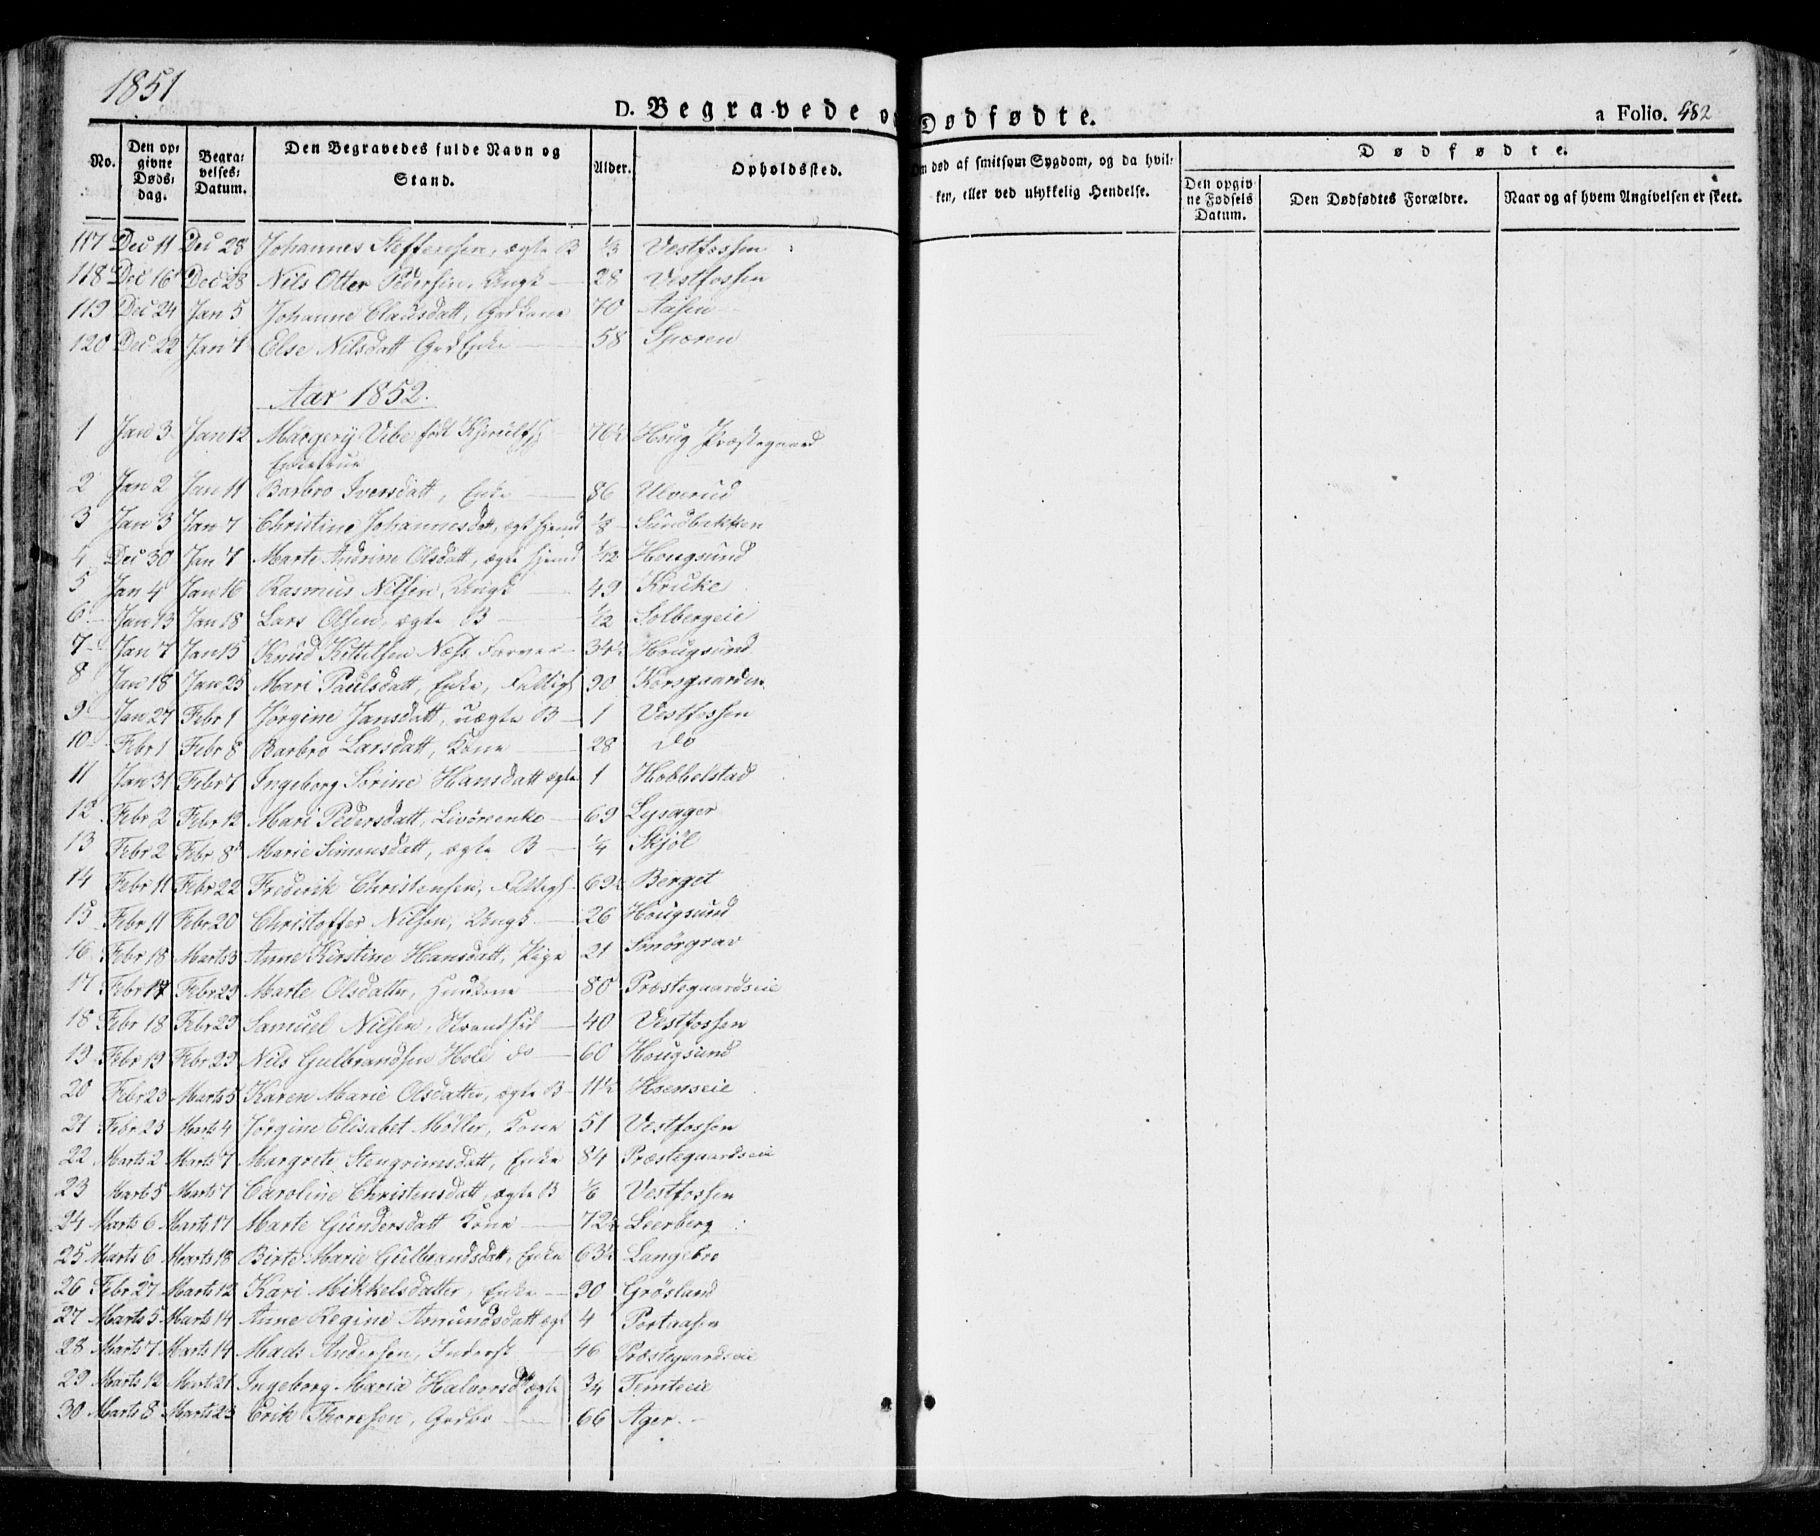 1851
D. Begravede og Dødfødte. a Folio. 482
No. Den opgivne Dødsdag. Begravelses-Datum. Den Begravedes fulde Navn og Stand. Alder. Opholdssted. Om død af smitsom Sygdom, og da hvilken, eller ved ulykkelig Hendelse. Dødfødte.
Den opgivne Fødsels Datum. Den Dødfødtes Forældre. Naar og af hvem Angivelsen er skeet.
117 Dec 11 Dec 28 Johannes Steffensen, ægte B 1/3 Vestfossen
118 Dec 16 Dec 28 Nils Otter Pedersen, Ungk 28 Vestfossen
119 Dec 24 Jan 5 Johanne Clausdatt, Grdkone 70 Aasen
120 Dec 22 Jan 7 Else Nilsdatt GrdEnke 58 Speren
Aar 1852.
1 Jan 3 Jan 12 Margery Vibe født Kjerulff 76½ Houg Præstegaard
Enkefrue
2 Jan 2 Jan 11 Barbro Iversdatt, Enke 86 Ulverud
3 Jan 3 Jan 7 Christine Johannesdatt, ægt 1/8 Sundbakken
4 Dec 30 Jan 7 Marte Andrine Olsdatt, ægte 1/12 Hougsund
5 Jan 4 Jan 16 Rasmus Nilsen, Ungk 49 Kruke
6 Jan 13 Jan 18 Lars Olsen, ægte B 1/2 Solbergeie
7 Jan 7 Jan 15 Knud Kittelsen Næss Farver 34½ Hougsund
8 Jan 18 Jan 25 Mari Paulsdatt, Enke, Fattigl 90 Korsgaarden
9 Jan 27 Febr 1 Jørgine Jansdatt, uægte B 1 Vestfossen
10 Febr 1 Febr 8 Barbro Larsdatt, Kone 28 do
11 Jan 31 Febr 7 Ingeborg Sørine Hansdatt ægte 1 Hobbelstad
12 Febr 2 Febr 12 Mari Pedersdatt, Livørenke 69 Lysager
13 Febr 2 Febr 8 Marie Simensdatt, ægte B 1/4 Skjøl
14 Febr 11 Febr 22 Frederik Christensen, Fattigl 69½ Berget
15 Febr 11 Febr 20 Christoffer Nilsen, Ungk 26 Hougsund
16 Febr 18 Marts 3 Anne Kirstine Hansdatt, Pige 21 Smörgrav
17 Febr 17 Febr 29 Marte Olsdatter, Huuskone 80 Præstegaardseie
18 Febr 18 Febr 29 Samuel Nilsen, Strandsid 40 Vestfossen
19 Febr 19 Febr 29 Nils Gulbrandsen Hole do 60 Hougsund
20 Febr 23 Marts 5 Karen Marie Olsdatter, ægte B 11½ Hoenseie
21 Febr 25 Marts 4 Jørgine Elisabet Møller, Kone 51 Vestfossen
22 Marts 2 Marts 7 Margrete Stengrimsdatt, Enke 84 Præstegaardseie
23 Marts 5 Marts 7 Caroline Christensdatt, ægte B 1/6 Vestfossen
24 Marts 6 Marts 17 Marte Gundersdatt Kone 72½ Leerberg
25 Marts 6 Marts 18 Birte Marie Gulbrandsdatt, Enke 63½ Langebro
26 Febr 27 Marts 12 Kari Mikkelsdatter, Enke 90 Grøsland
27 Marts 5 Marts 14 Anne Regine Amundsdatt ægt 4 Portaasen
28 Marts 7 Marts 14 Mads Andersen, Inderst 46 Præstegaardseie
29 Marts 12 Marts 21 Ingeborg Maria Halvorsd ægte 3/4 Temteeie
30 Marts 8 Marts 23 Erik Thoresen, Grdbr 66 Ager